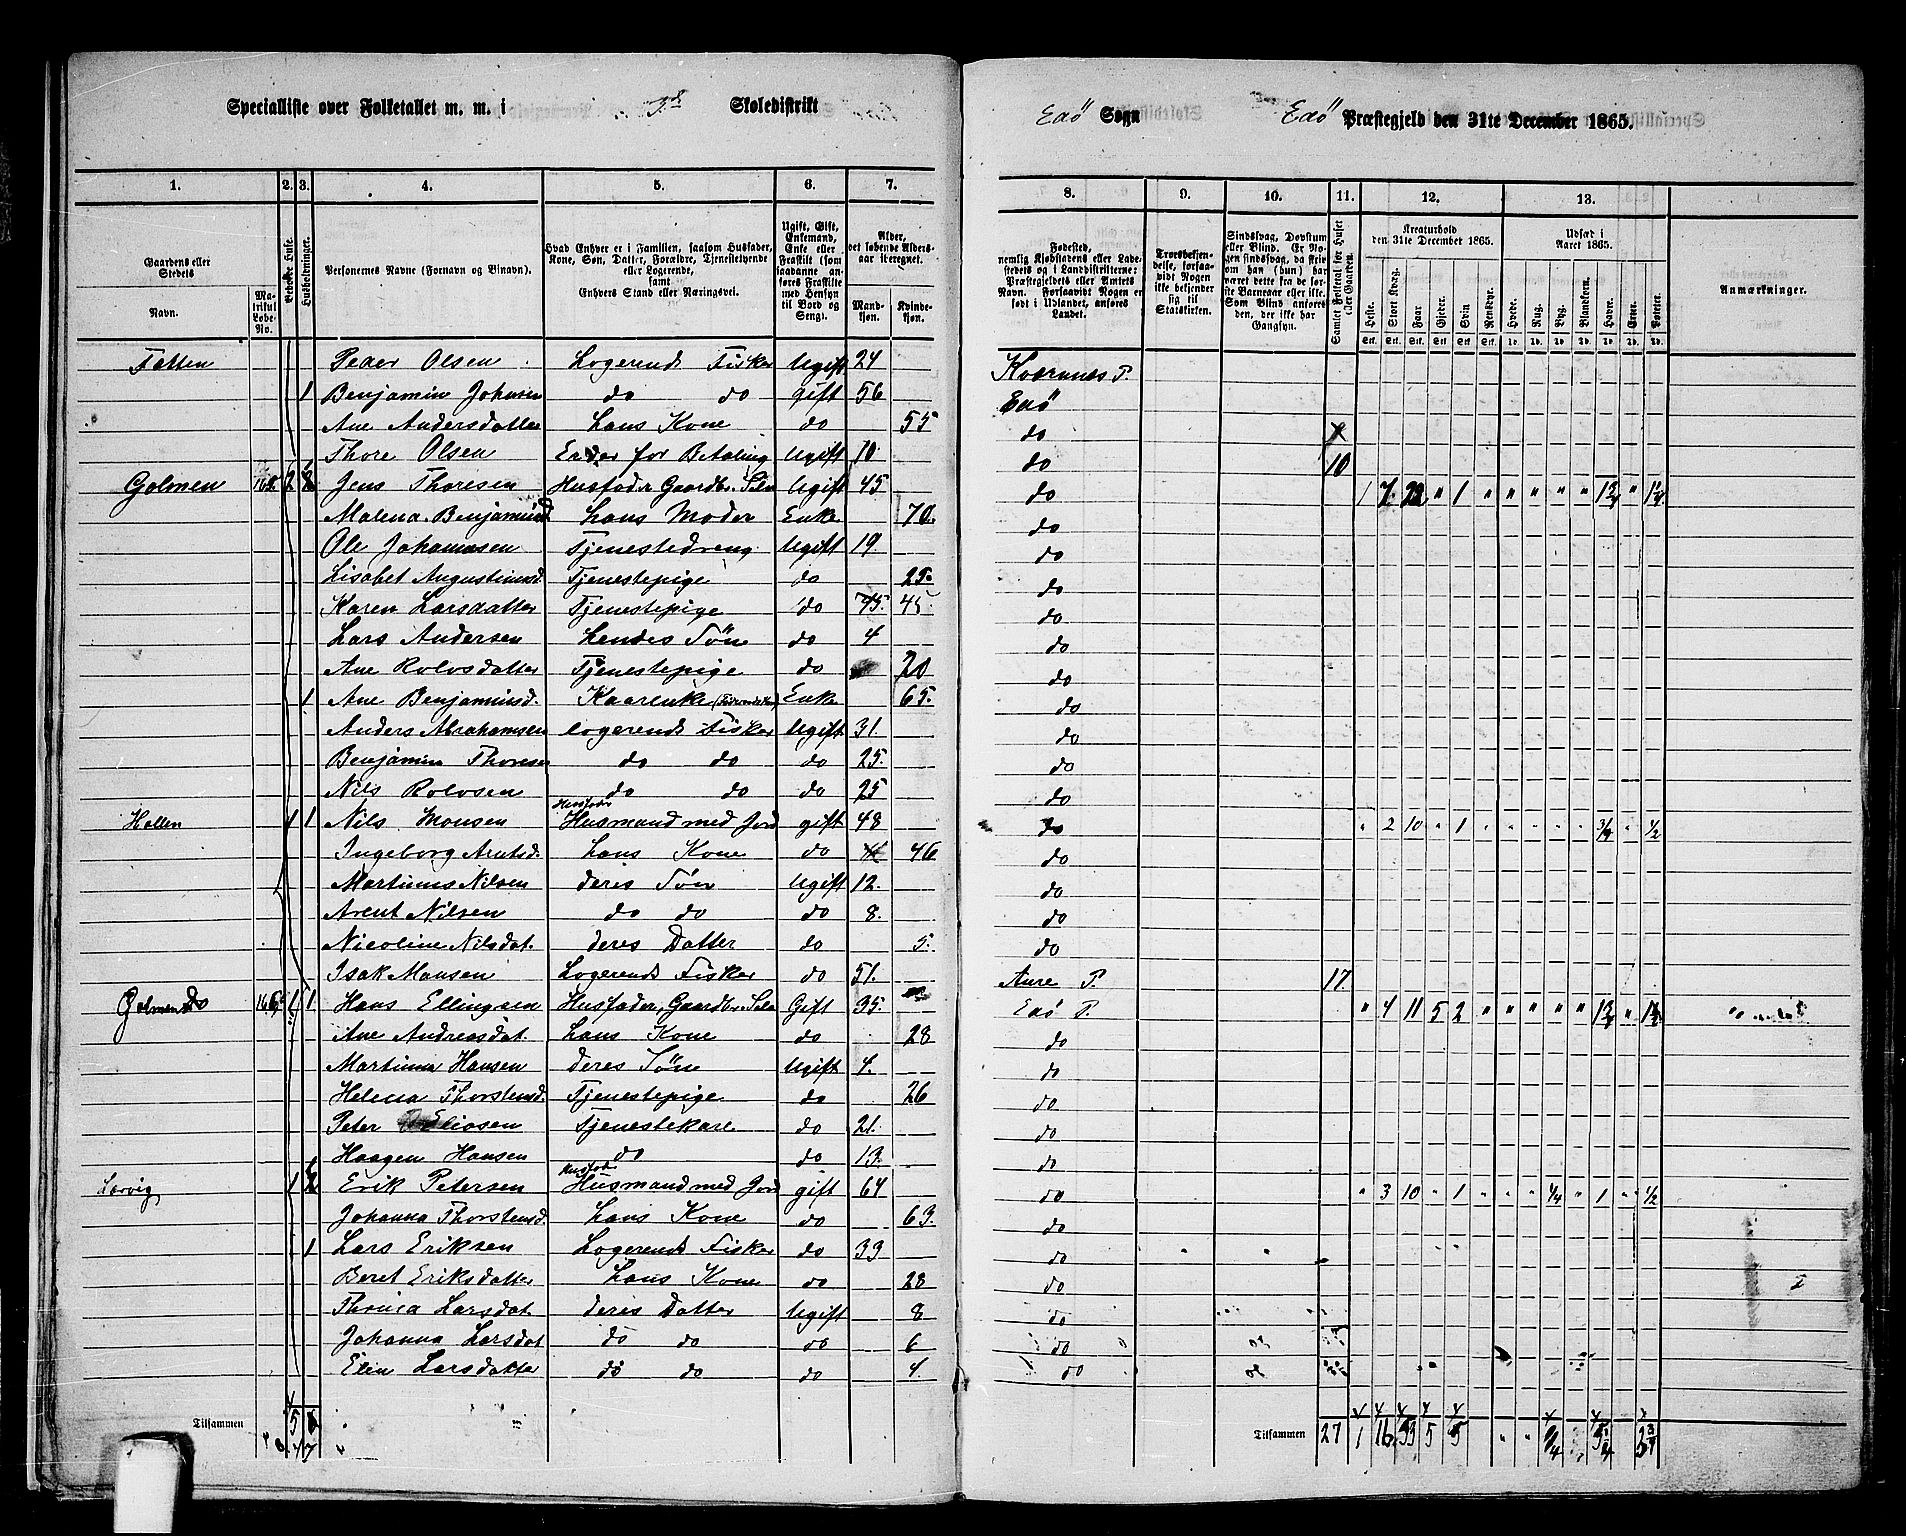 Specialliste over Folketallet m. m. i 3d Skoledistrikt Edø Sogn Edø Præstegjeld den 31te December 1865.
1. 2. 3. 4. 5. 6. 7. 8. 9. 10. 11. 12. 13.
Gaardens eller Stedets
Navn. Matrikul Løbe-No.
Beboede Huse.
Husholdninger.
Personernes Navne (Fornavn og Binavn).
Hvad Enhver er i Familien, saasom Husfader, Kone, Søn, Datter, Forældre, Tjenestetyende eller Logerende, samt Enhvers Stand eller Næringsvei.
Ugift, Gift, Enkemand, Enke eller Fraskilt (som saadanne anføres Fraskilte med Hensyn til Bord og Seng).
Alder, det løbende Aldersaar iberegnet.
Mandkjøn. Kvindekjøn.
Fødested, nemlig Kjøbstadens eller Ladestedets og i Landdistrikterne: Præstegjeldets eller Amtets Navn. Forsaavidt Nogen er født i Udlandet, anføres Landet.
Trosbekjendelse, forsaavidt Nogen ikke bekjender sig til Statskirken.
Sindssvag, Døvstum eller Blind. Er Nogen sindssvag, da skrives om han (hun) har været dette fra de første Barneaar eller ikke. Som Blind anføres den, der ikke har Gangsyn.
Samlet Folketal for Huset eller Gaarden.
Kreaturhold den 31te December 1865.
Heste. Stort Kvæg. Faar Gjeder. Svin Rensdyr.
Udsæd i Aaret 1865.
Hvede. Rug. Byg. Blandkorn. Havre. Erter. Poteter.
Anmærkninger.
Tetten Peder Olsen Logerende Fisker Ugift 24 Kvernnes P.
1 Benjamin Johnsen do do gift 56 Edø
Ane Andersdatter hans Kone do 55 do
Thore Olsen for Betaling Ugift 70 do 10
Golmen 164 2 Jens Thoresen Husfader Gaardbr. Selv Ugift 45 do 1 7 22 " 1 " " " " "
Malena Benjaminsd hans Moder Enke 70. do
Ole Johannesen Tjenestedreng Ugift 19 do
Lisabet Augustinusd. Tjenestepige do 25. do
Karen Larsdatter Tjenestepige do 45. do
Lars Andersen hendes Søn do 4 do
Ane Rolvsdatter Tjenestepige do 20 do
1 Ane Benjaminsd. Kaarenke Enke 65. do
Anders Abrahamsen logerende Fisker Ugift 31. do
Benjamin Thoresen do do do 25. do
Nils Rolvsen do do do 25 do
Hollen 1 1 Nils Monsen Husfader Husmand med Jord gift 48 do " 2 10 " 1 " " " " 3/4 " 1/2
Ingeborg Arntsd. hans Kone do 46 do
Martinus Nilsen deres Søn Ugift 12. do
Arent Nilsen do do do 8. do
Nicoline Nilsdat. deres Datter do 5. do
Isak Monsen Logerende Fisker do 51. Aure P. 17
Golmen do 1 1 Hans Ellingsen Husfader, Gaardbr. Selv Gift 35. Edø P. " 4 11 5 2 " " " " "
Ane Andreasdat. hans Kone do 28 do
Martinus Hansen deres Søn Ugift 4. do
Helena Thorstensd. Tjenestepige do 26 do
Peter Eliasen Tjenestekare do 21. do
Haagen Hansen do do 13. do
Lervig 1 Erik Petersen Husfader Husmand med Jord gift 64 do " 3 10 " 1 " " 1/4 " 1 " 1/2
Johanna Thorstensd. hans Kone do 63. do
1 Lars Eriksen Logerende Fisker do 33 do
Beret Eriksdatter hans Kone do 28 do
Larsdat. deres Datter Ugift 8 do
Johanna Larsdat do do do 6 do
Elin Larsdatter do do do 4. do
Tilsammen 5 Tilsammen 27 1 16 53 5 5 " "